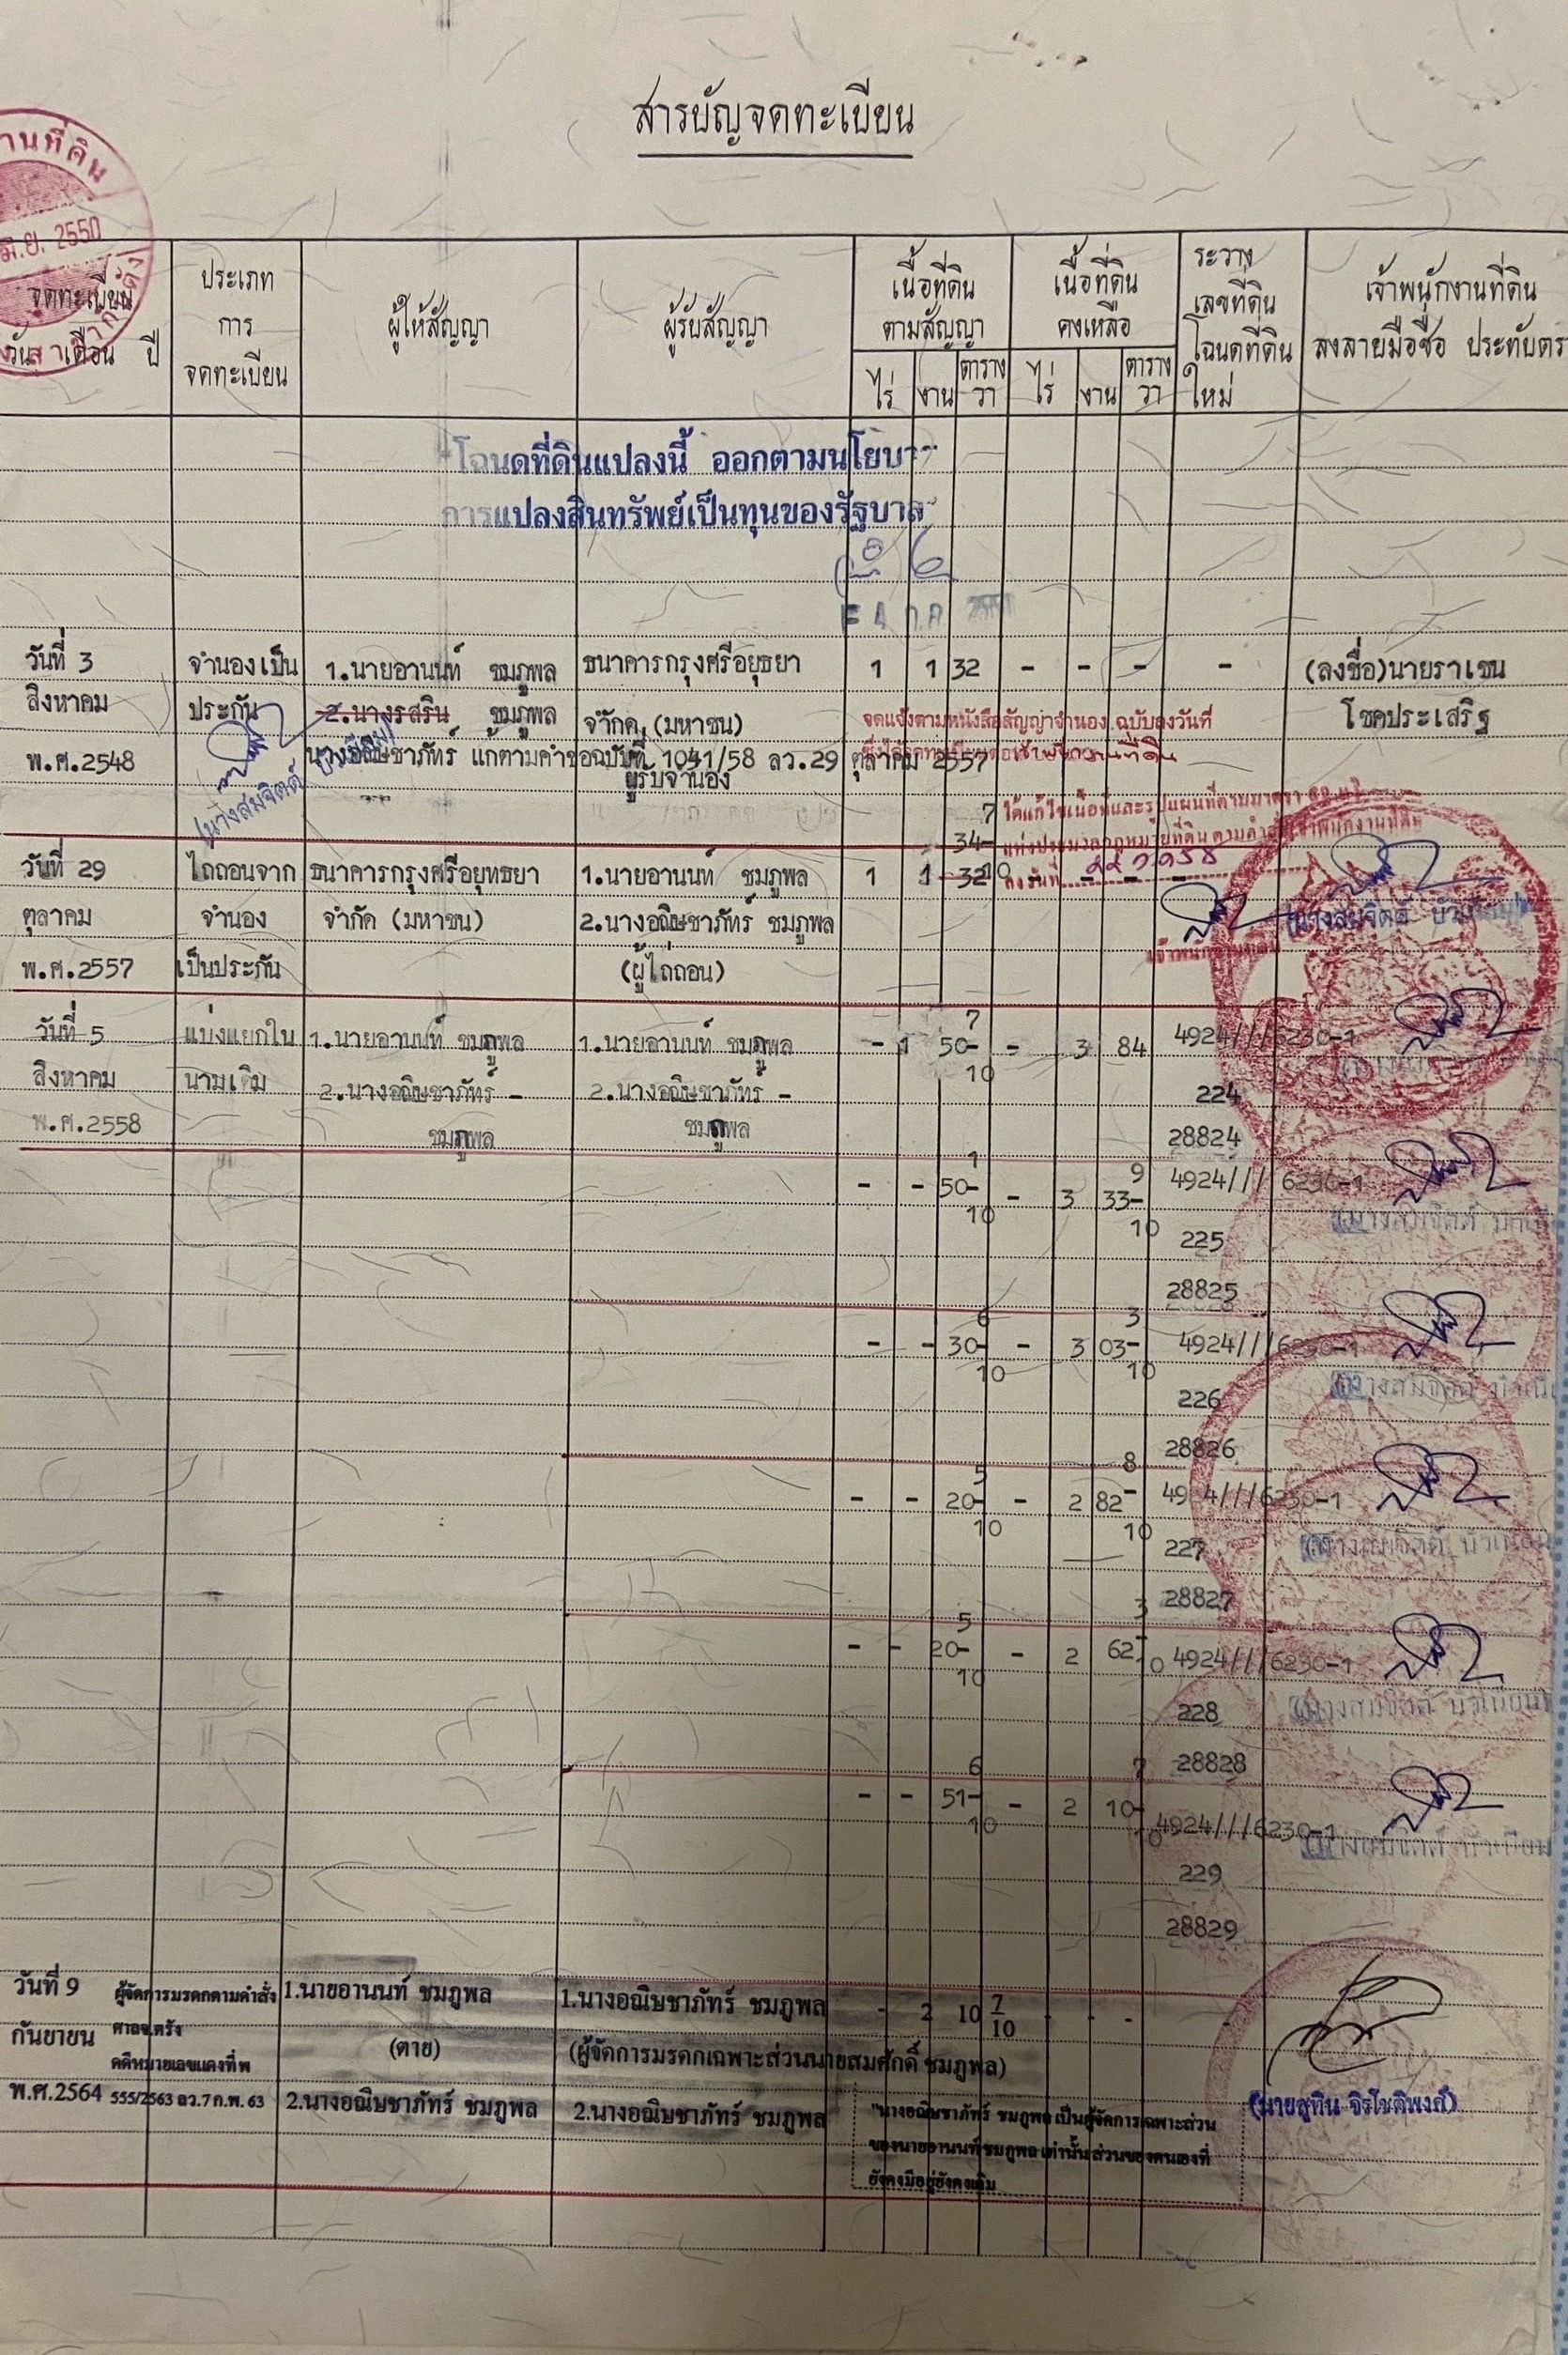 สารบัญจดทะเบียน
านที่ดิน
มิ.ย. 2550
จดทะเบียน
วัน เดือน ปี
ประเภท
การ
จดทะเบียน
ผู้ให้สัญญา
ผู้รับสัญญา
เนื้อที่ดิน
ตามสัญญา
ไร่ งาน ตาราง
วา
เนื้อที่ดิน
คงเหลือ
ไร่ งาน ตาราง
วา
ระวาง
เลขที่ดิน
โฉนดที่ดิน
ใหม่
เจ้าพนักงานที่ดิน
ลงลายมือชื่อ ประทับตรา
โฉนดที่ดินแปลงนี้ ออกตามนโยบา
การแปลงสินทรัพย์เป็นทุนของรัฐบาล
วันที่ 3 จำนองเป็น 1.นายอานนท์ ชมภูพล ธนาคารกรุงศรีอยุธยา 1 1 32 - - - - (ลงชื่อ)นายราเชน
สิงหาคม ประกัน 2.นางรสริน ชมภูพล จำกัด (มหาชน) โชคประเสริฐ
จดแจ้งตามหนังสือสัญญาจำนอง ฉบับลงวันที่
พ.ศ.2548 นางอณิษชาภัทร์ แก้ตามคำขอฉบับที่ 1041/58 ลว.29 ตุลาคม 2557
ผู้รับจำนอง
(นางสมจิตต์
ได้แก้ไขเนื้อที่และรูปแผนที่ตามมาตรา
แห่งประมวลกฎหมายที่ดิน
ลงวันที่
7
34-
10
วันที่ 29 ไถ่ถอนจาก ธนาคารกรุงศรีอยุทธยา 1.นายอานนท์ ชมภูพล 1 1 32 - - - -
ตุลาคม จำนอง จำกัด (มหาชน) 2.นางอณิษชาภัทร์ ชมภูพล (นางสมจิตต์
พ.ศ.2557 เป็นประกัน (ผู้ไถ่ถอน)
7
วันที่ 5 แบ่งแยกใน 1.นายอานนท์ ชมภูพล 1.นายอานนท์ ชมภูพล - 1 50- - 3 84 4924///6230-1
10
สิงหาคม นามเดิม 2.นางอณิษชาภัทร์ - 2.นางอณิษชาภัทร์ - 224
พ.ศ.2558 ชมภูพล ชมภูพล 28824
1 9
- - 50- - 3 33- 4924///6230-1
10 10
225
28825
6 3
- - 30- - 3 03- 4924///6230-1
10 10
226
28826
5 8
- - 20- - 2 82- 4924///6230-1
10 10
227
28827
5 3
- - 20- - 2 62- 4924///6230-1
10
228
28828
6 7
- - 51- - 2 10- 4924///6230-1
10
229
28829
วันที่ 9 ผู้จัดการมรดกตามคำสั่ง 1.นายอานนท์ ชมภูพล 1.นางอณิษชาภัทร์ ชมภูพล - 2 10 7/10 - - -
กันยายน ศาลจ.ตรัง (ตาย) (ผู้จัดการมรดกเฉพาะส่วนนายสมศักดิ์ ชมภูพล)
คดีหมายเลขแดงที่ พ
พ.ศ.2564 555/2563 ลว.7 ก.พ. 63 2.นางอณิษชาภัทร์ ชมภูพล 2.นางอณิษชาภัทร์ ชมภูพล (นายสุทิน จิรโชติพงศ์)
"นางอณิษชาภัทร์ ชมภูพล เป็นผู้จัดการเฉพาะส่วน
ของนายอานนท์ ชมภูพล เท่านั้น ส่วนของตนเองที่
ยังคงมีอยู่ยังคงเดิม